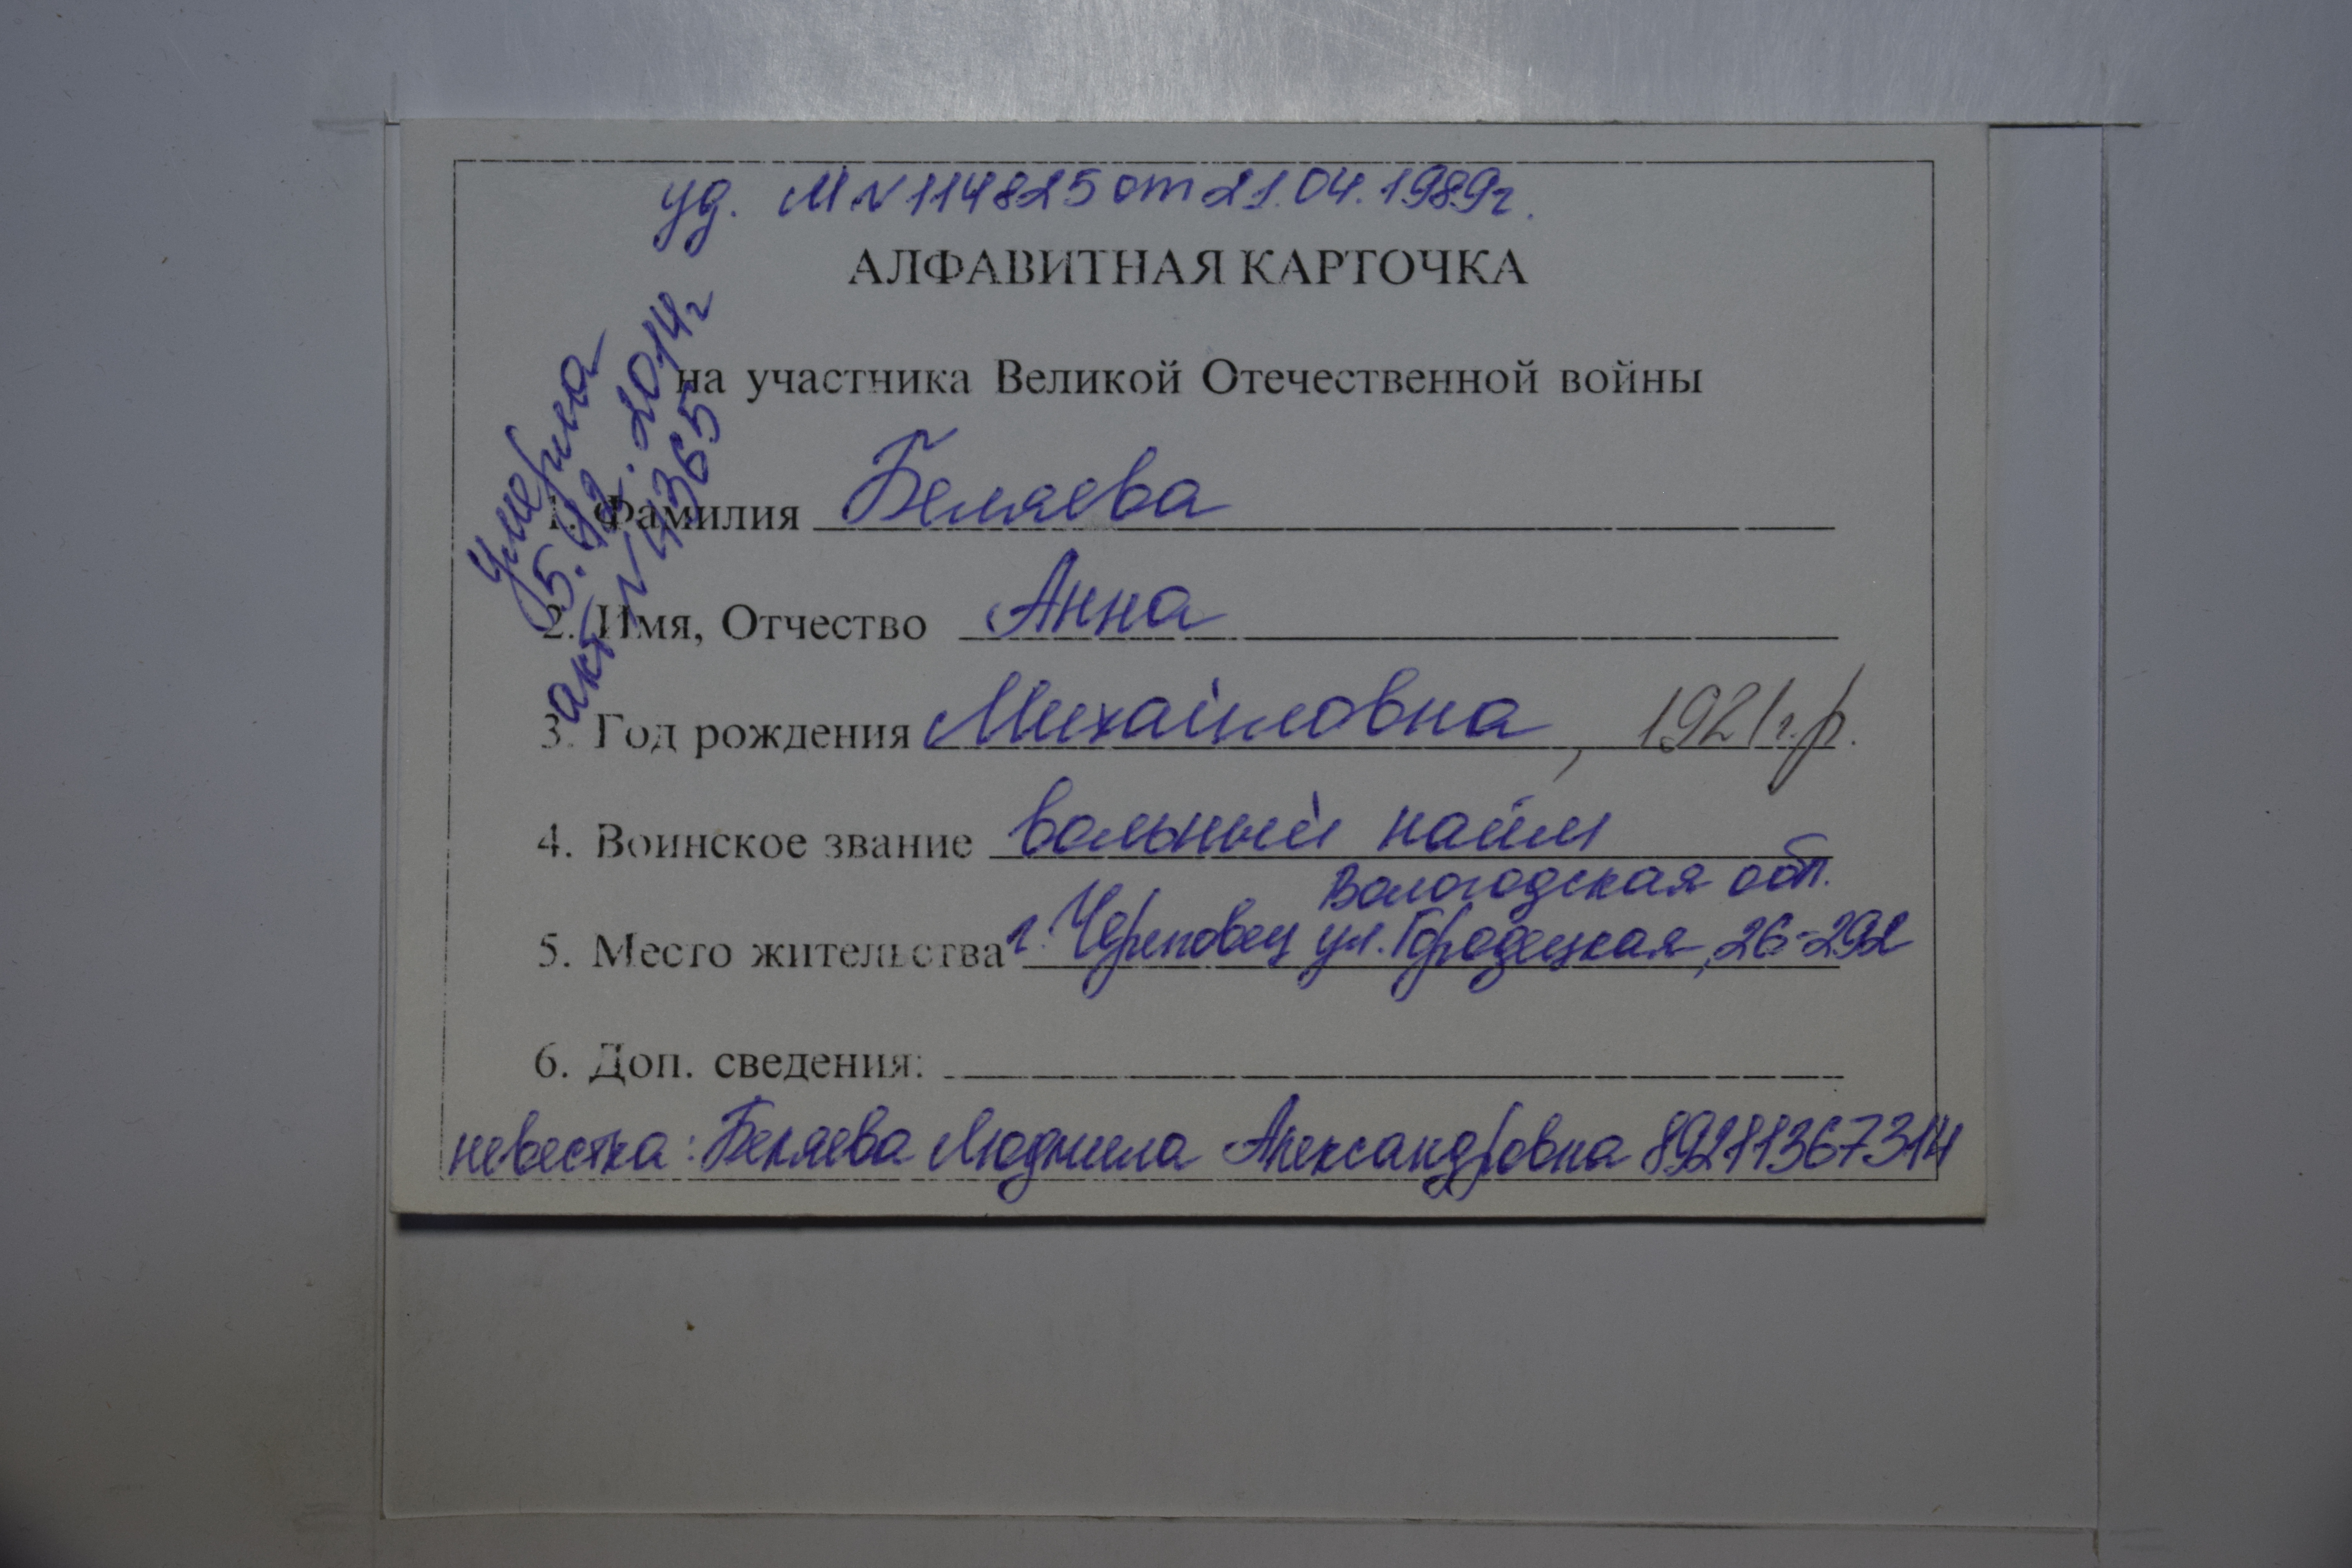 уд. М N 114825 от 21.04.1989г.
АЛФАВИТНАЯ КАРТОЧКА
на участника Великой Отечественной войны
умерла
5.12.2014г
акт N 4365
1. Фамилия Беляева
2. Имя, Отчество Анна
3. Год рождения Михайловна, 1921 г.р.
4. Воинское звание вольный найм
Вологодская обл.
5. Место жительства г. Череповец ул. Городецкая, 26-292
6. Доп. сведения:
невестка: Беляева Людмила Александровна 89211367314